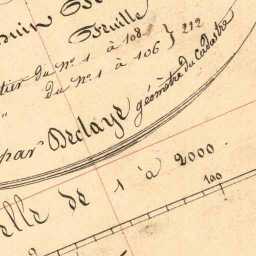 Feuille
du n° 1 à 108 } 212
du n° 1 à 106
par Declaye géomètre du cadastre
elle de 1 à 2000.
100